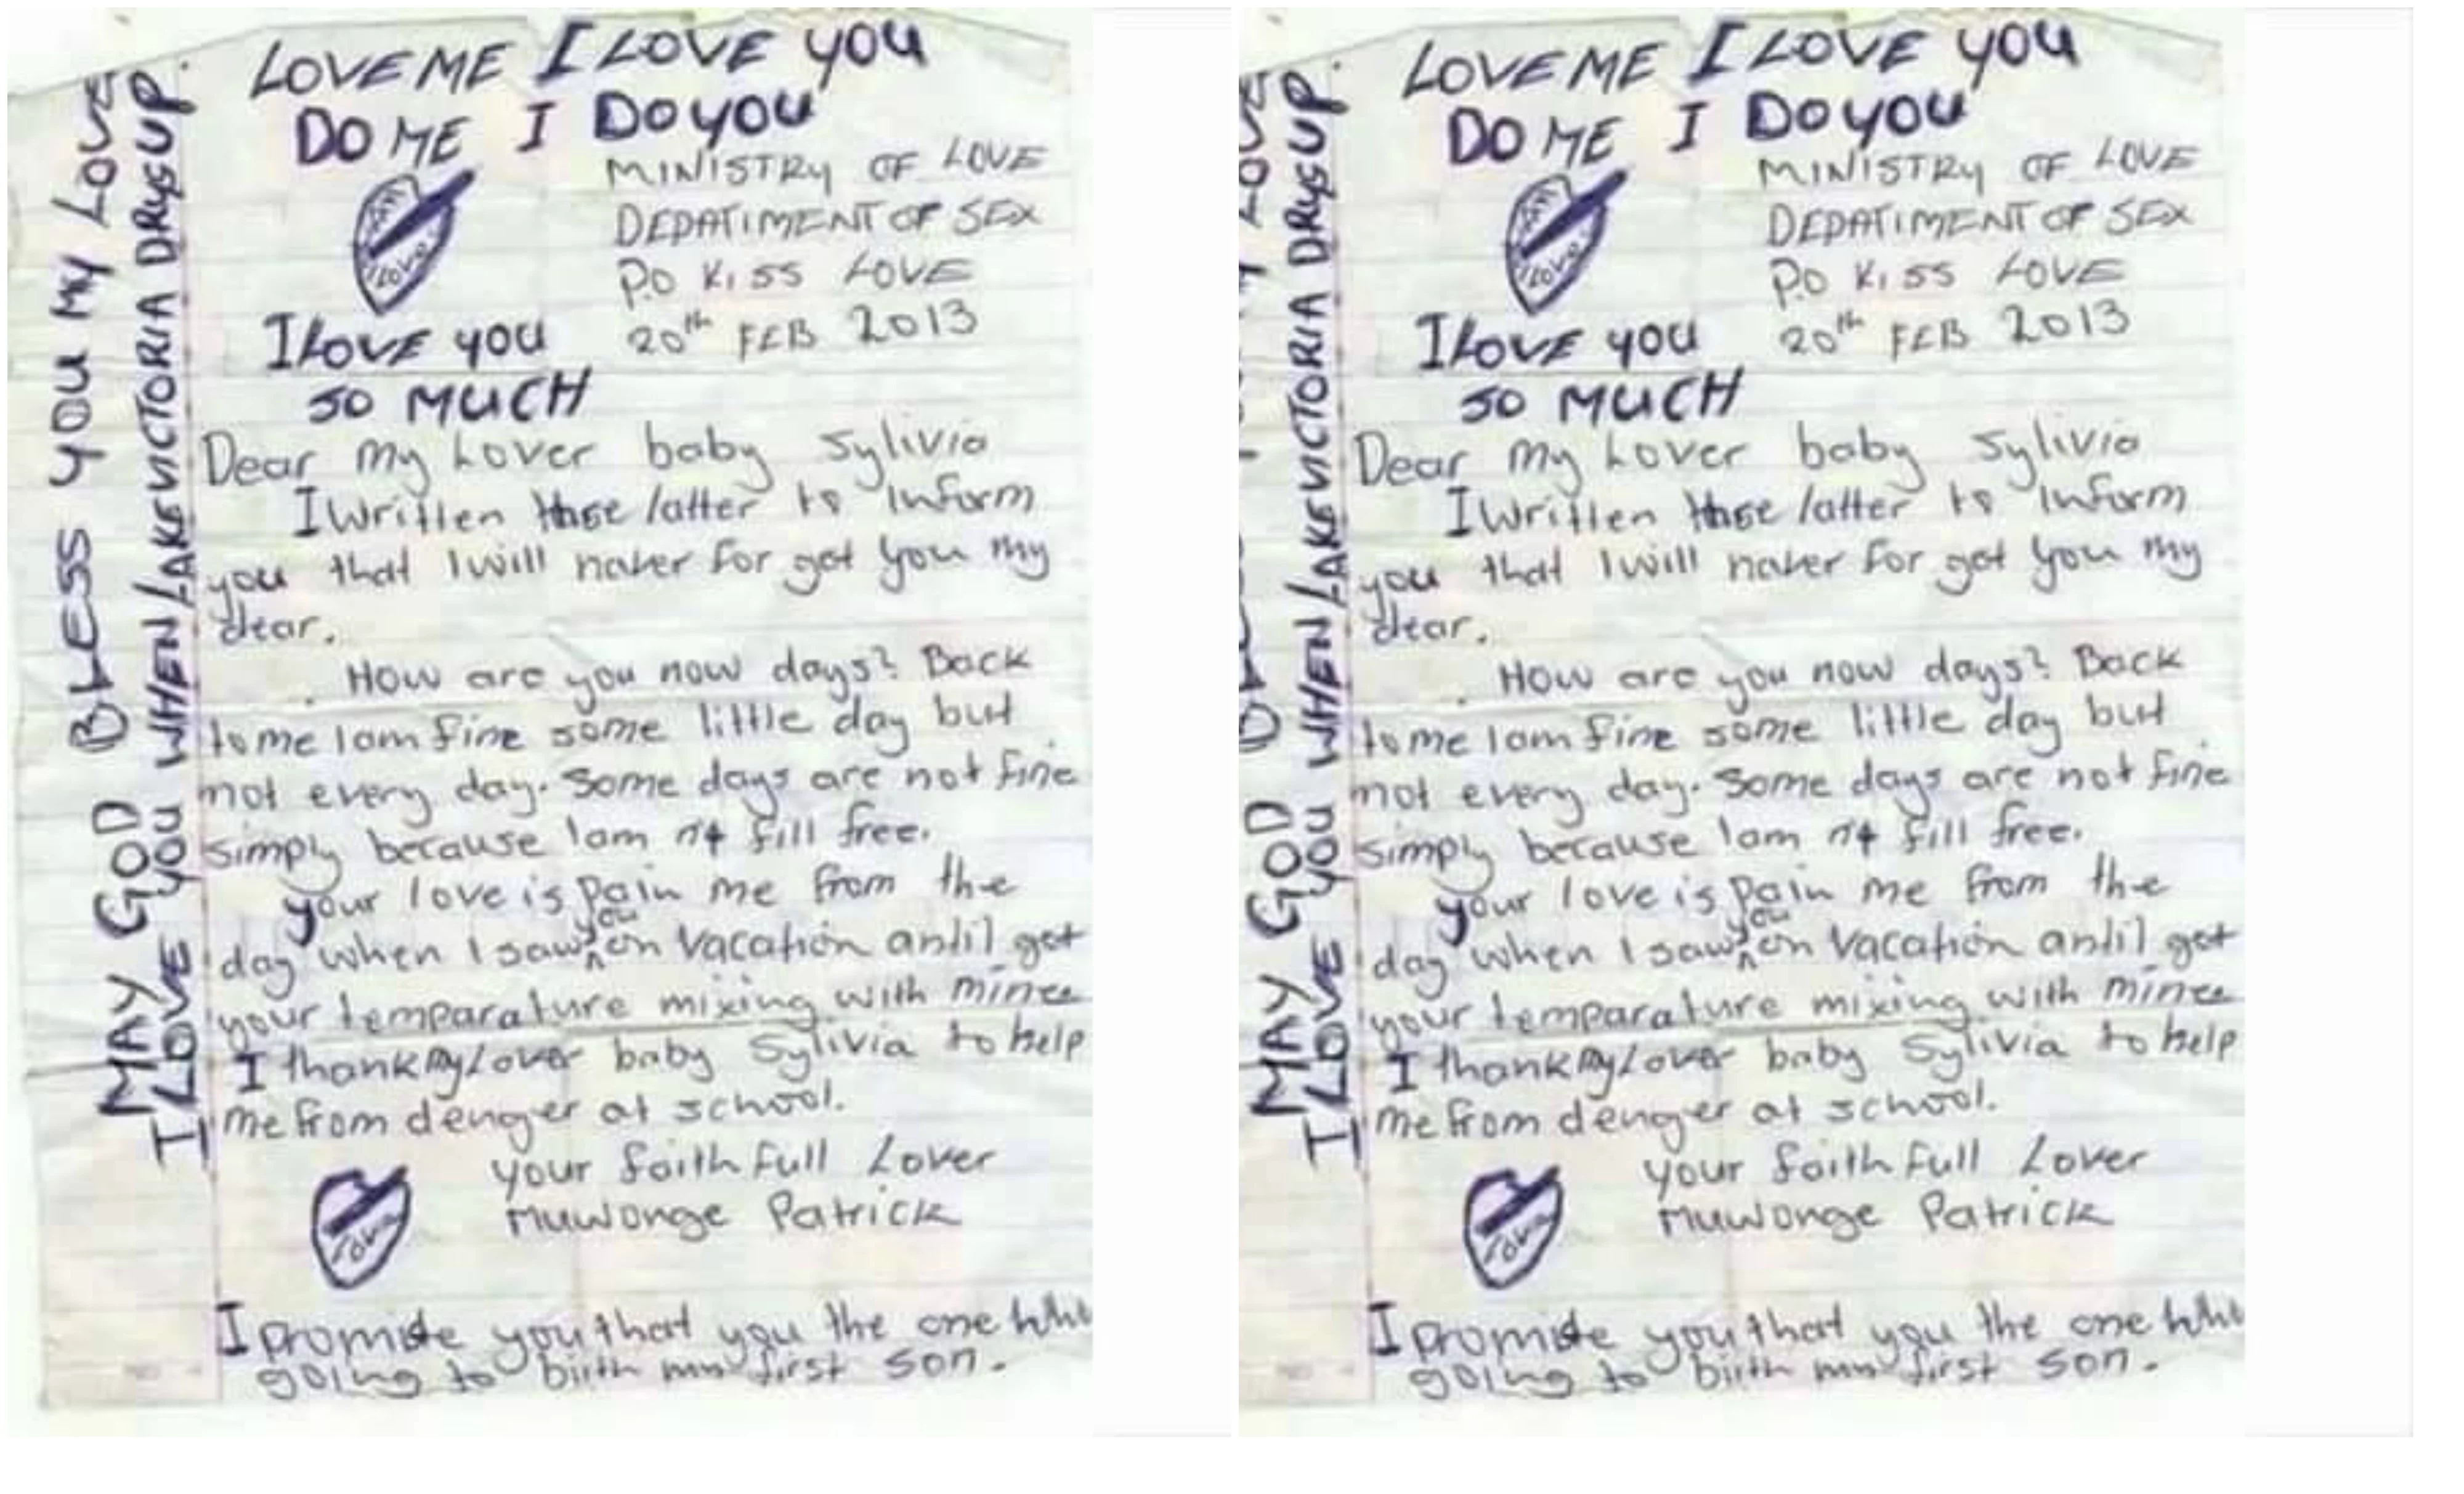 LOVE ME I LOVE YOU
DO ME I DO YOU
MINISTRY OF LOVE
DEPATIMENT OF SEX
P.O KISS LOVE
20th FEB 2013
I Love
I LOVE YOU
SO MUCH
Dear my Lover baby Sylivia
I written these latter to inform
you that I will naver for get you my
dear.
How are you now days? Back
to me I am fine some little day but
not every day. Some days are not fine
simply because I am nt fill free.
your love is pain me from the
day when I saw you on vacation antil get
your temparature mixing with mine
I thank my lover baby Sylivia to help
me from denger at school.
your faith full Lover
Muwonge Patrick
Love
I promise you that you the one who
going to birth my first son.
MAY GOD BLESS YOU MY LOVE
I LOVE YOU WHEN LAKE VICTORIA DRYS UP.
LOVE ME I LOVE YOU
DO ME I DO YOU
MINISTRY OF LOVE
DEPATIMENT OF SEX
P.O KISS LOVE
20th FEB 2013
I Love
I LOVE YOU
SO MUCH
Dear my Lover baby Sylivia
I written these latter to inform
you that I will naver for get you my
dear.
How are you now days? Back
to me I am fine some little day but
not every day. Some days are not fine
simply because I am nt fill free.
your love is pain me from the
day when I saw you on vacation antil get
your temparature mixing with mine
I thank my lover baby Sylivia to help
me from denger at school.
your faith full Lover
Muwonge Patrick
Love
I promise you that you the one who
going to birth my first son.
MAY GOD LOVE
I LOVE YOU WHEN LAKE VICTORIA DRYS UP.